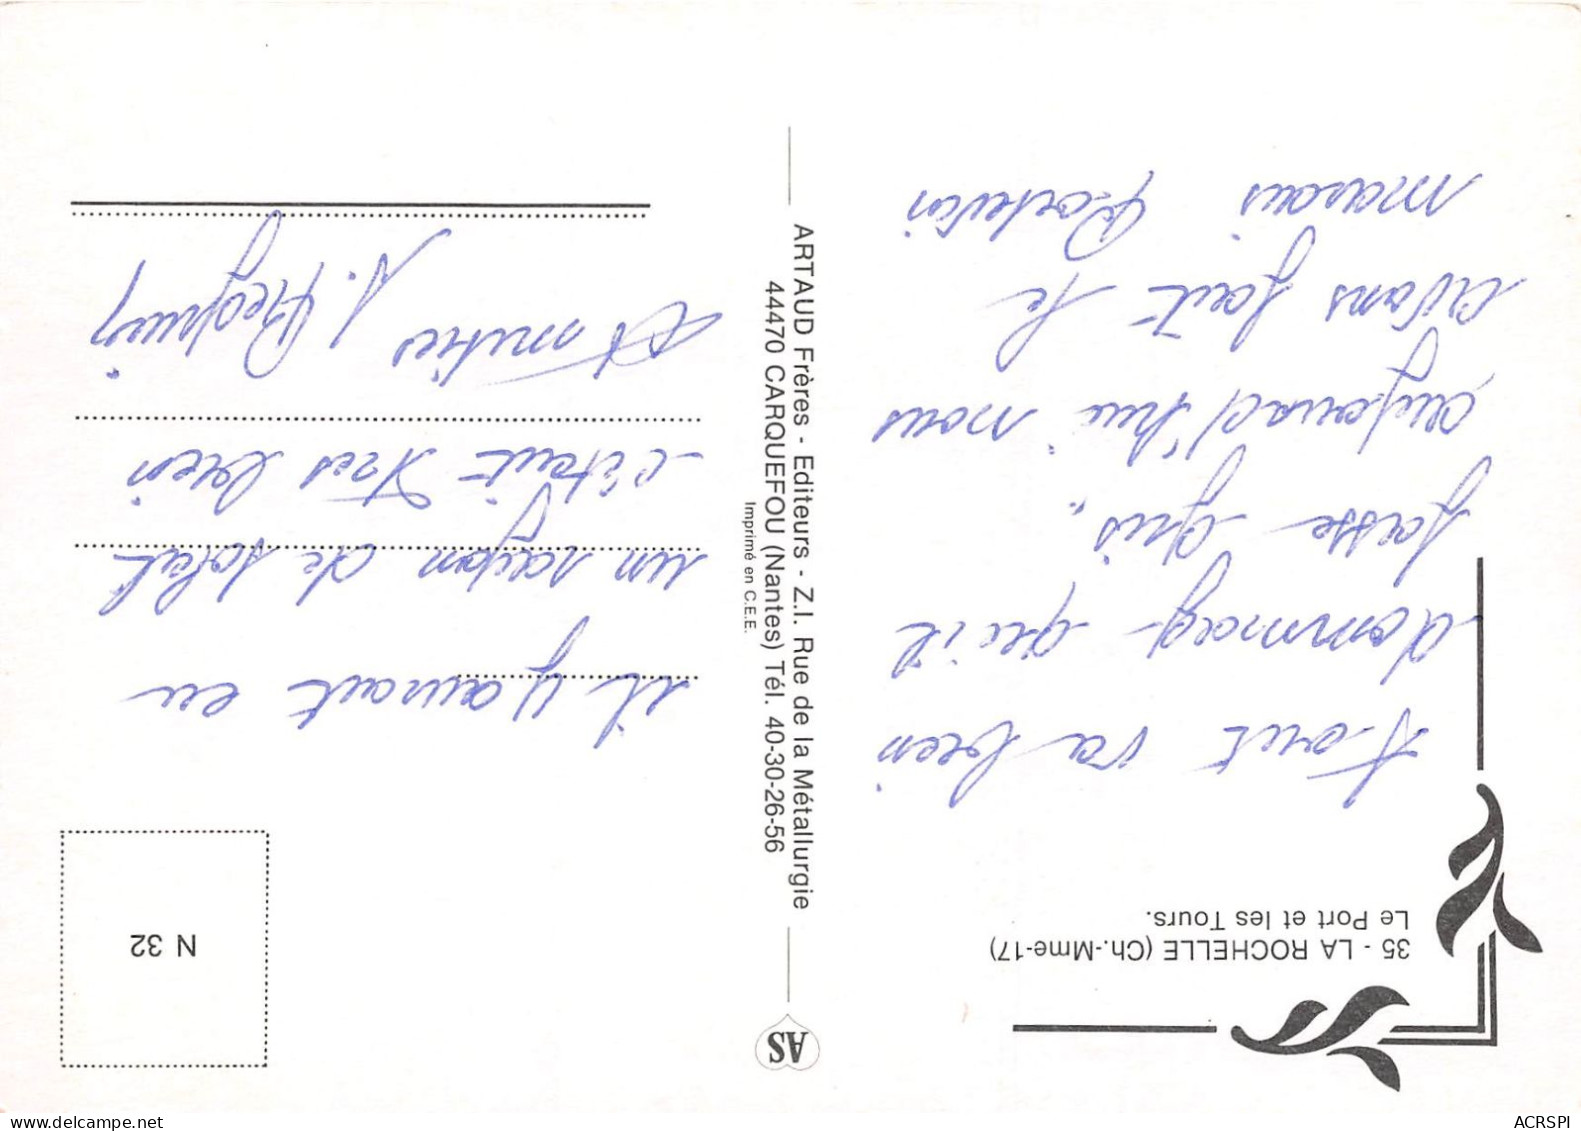 35 - LA ROCHELLE (Ch.-Mme-17)
Le Port et les Tours.
Tout va bien
dommag qu'il
fasse gris.
aujourd'hui nous
avons fait le
marais Poitevin
AS
ARTAUD Frères - Editeurs - Z.I. Rue de la Métallurgie
44470 CARQUEFOU (Nantes) Tél. 40-30-26-56
Imprimé en C.E.E.
N 32
il y aurait eu
un rayon de soleil
c'était tres bien
Amitiés
ACRSPI